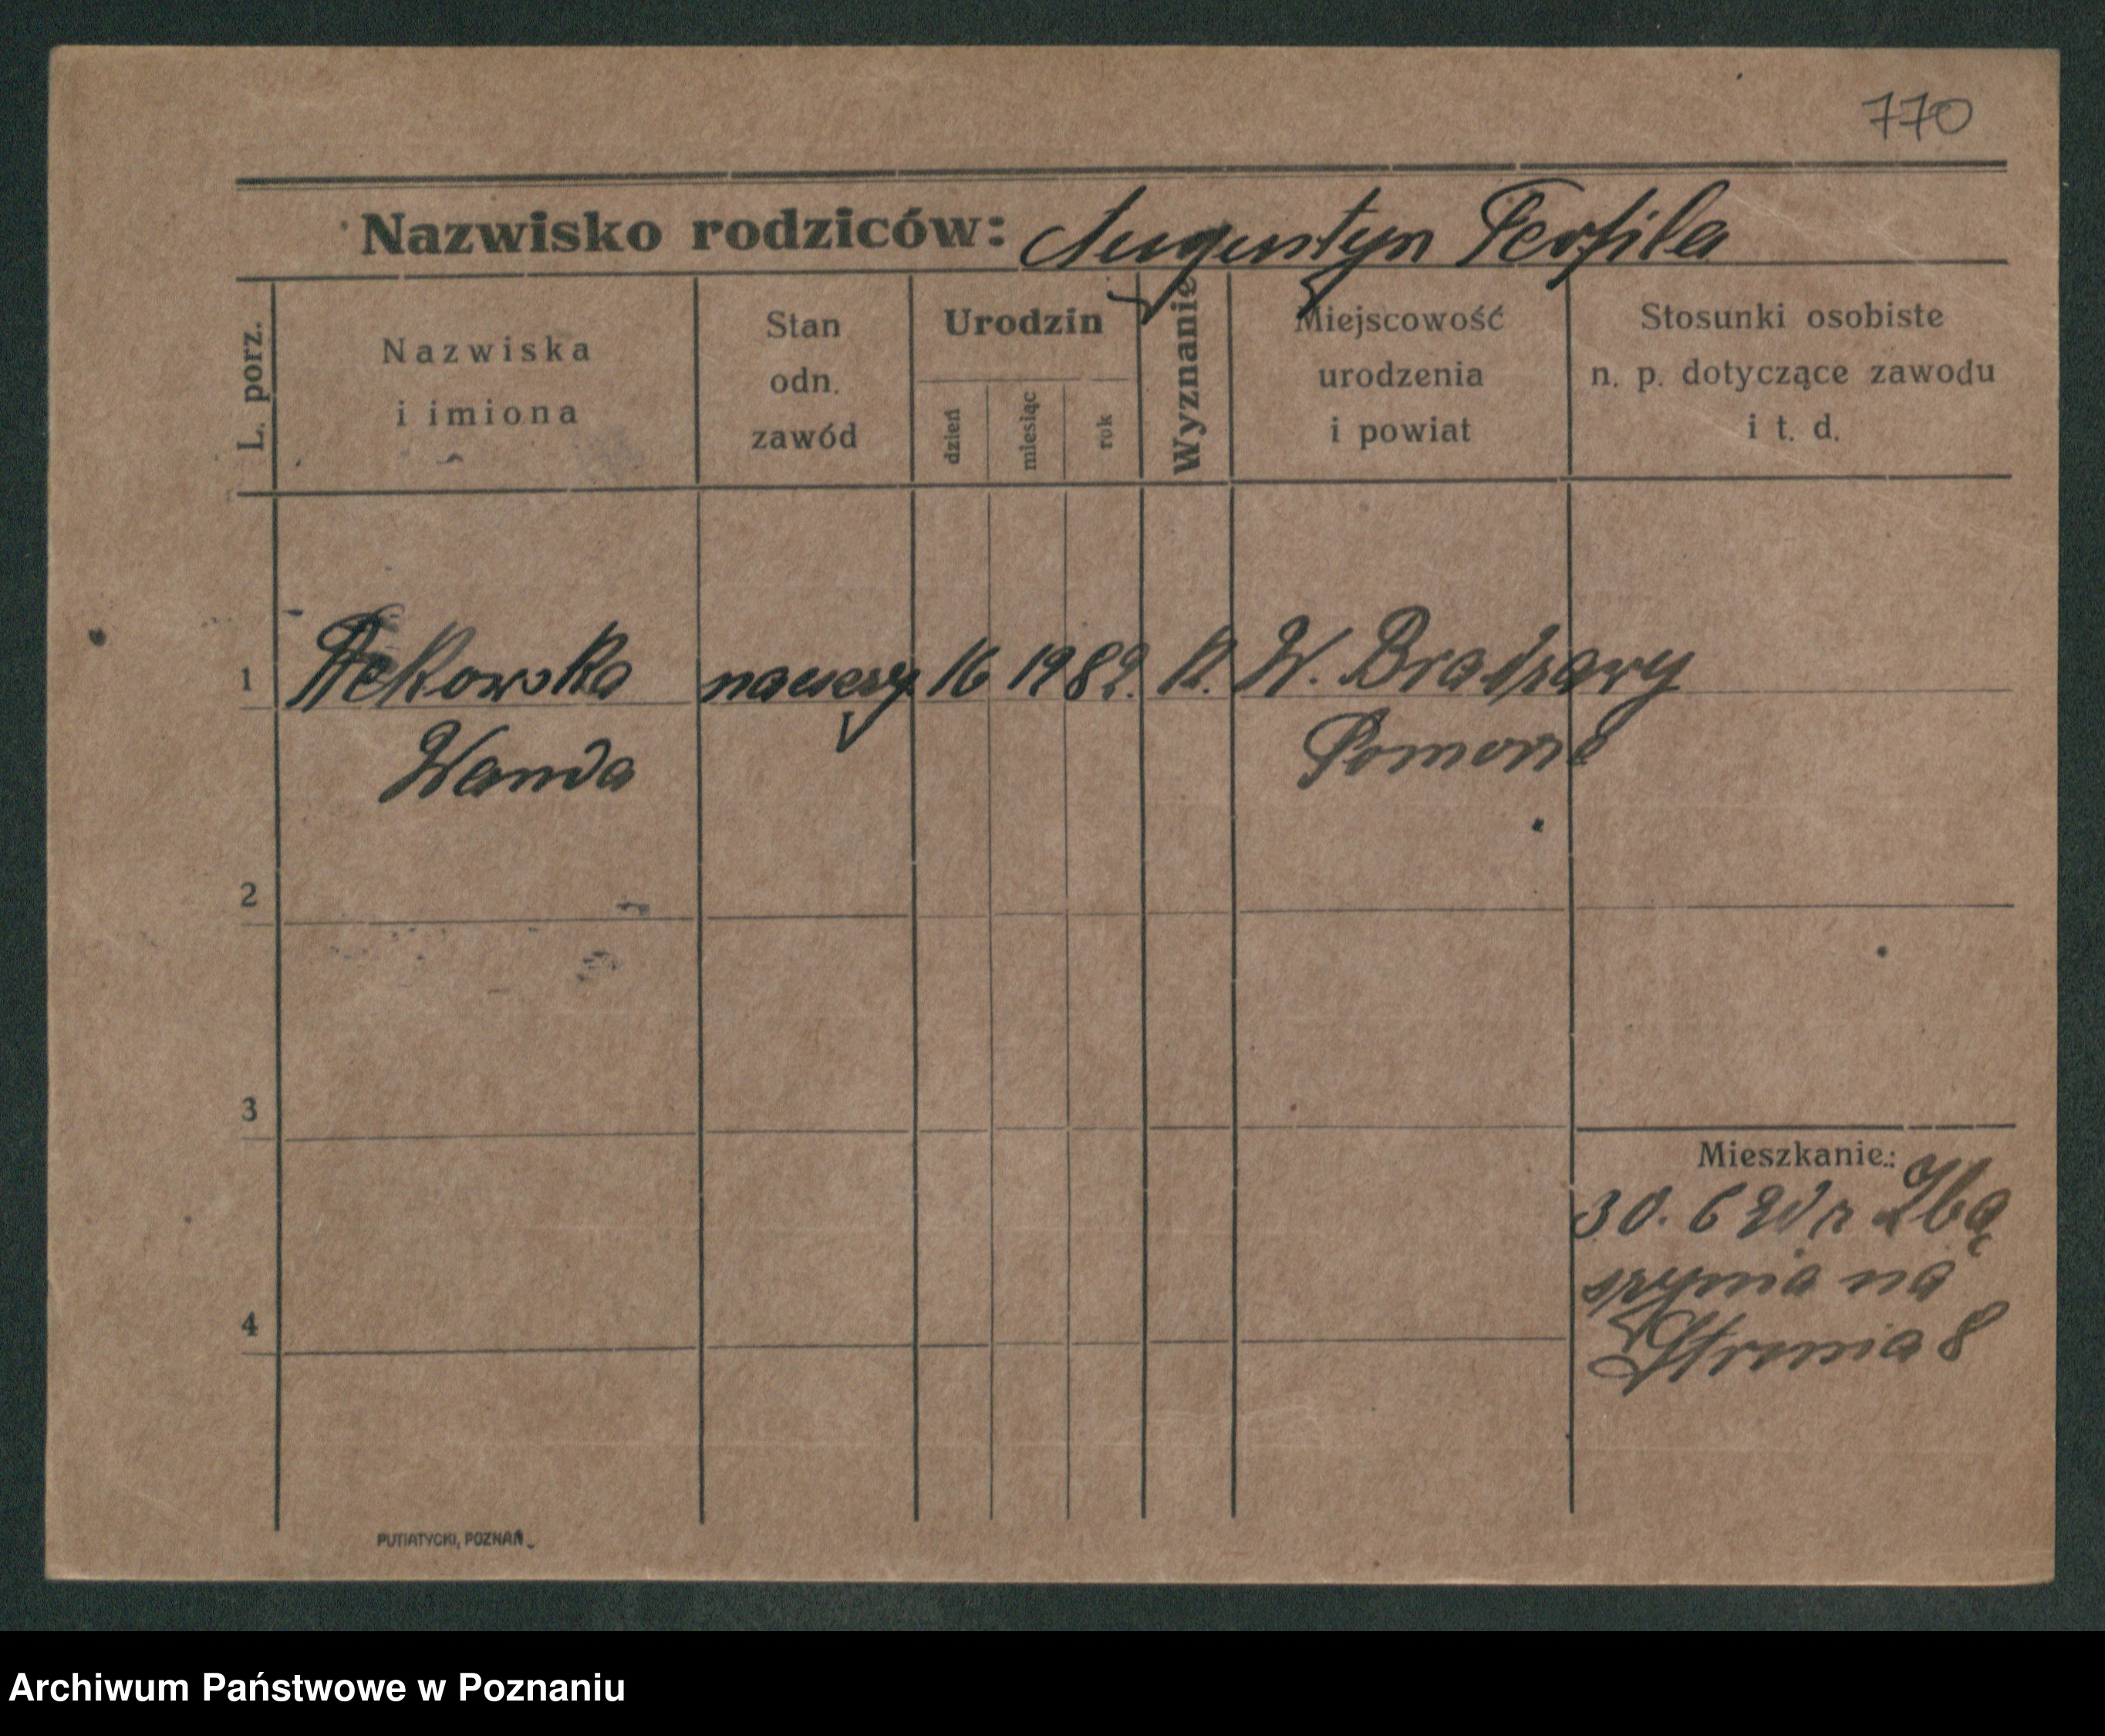 770
Nazwisko rodziców: Augustyn Teofila
L. porz.
Nazwiska
i imiona
Stan
odn.
zawód
Urodzin
dzień
miesiąc
rok
Wyznanie
Miejscowość
urodzenia
i powiat
Stosunki osobiste
n. p. dotyczące zawodu
i t. d.
1
nauczy 16 1982. K. W.
Wanda
Pomorze
2
3
4
Mieszkanie:
30. 6 Zbą
szynia na
8
PUTIATYCKI, POZNAŃ
Archiwum Państwowe w Poznaniu